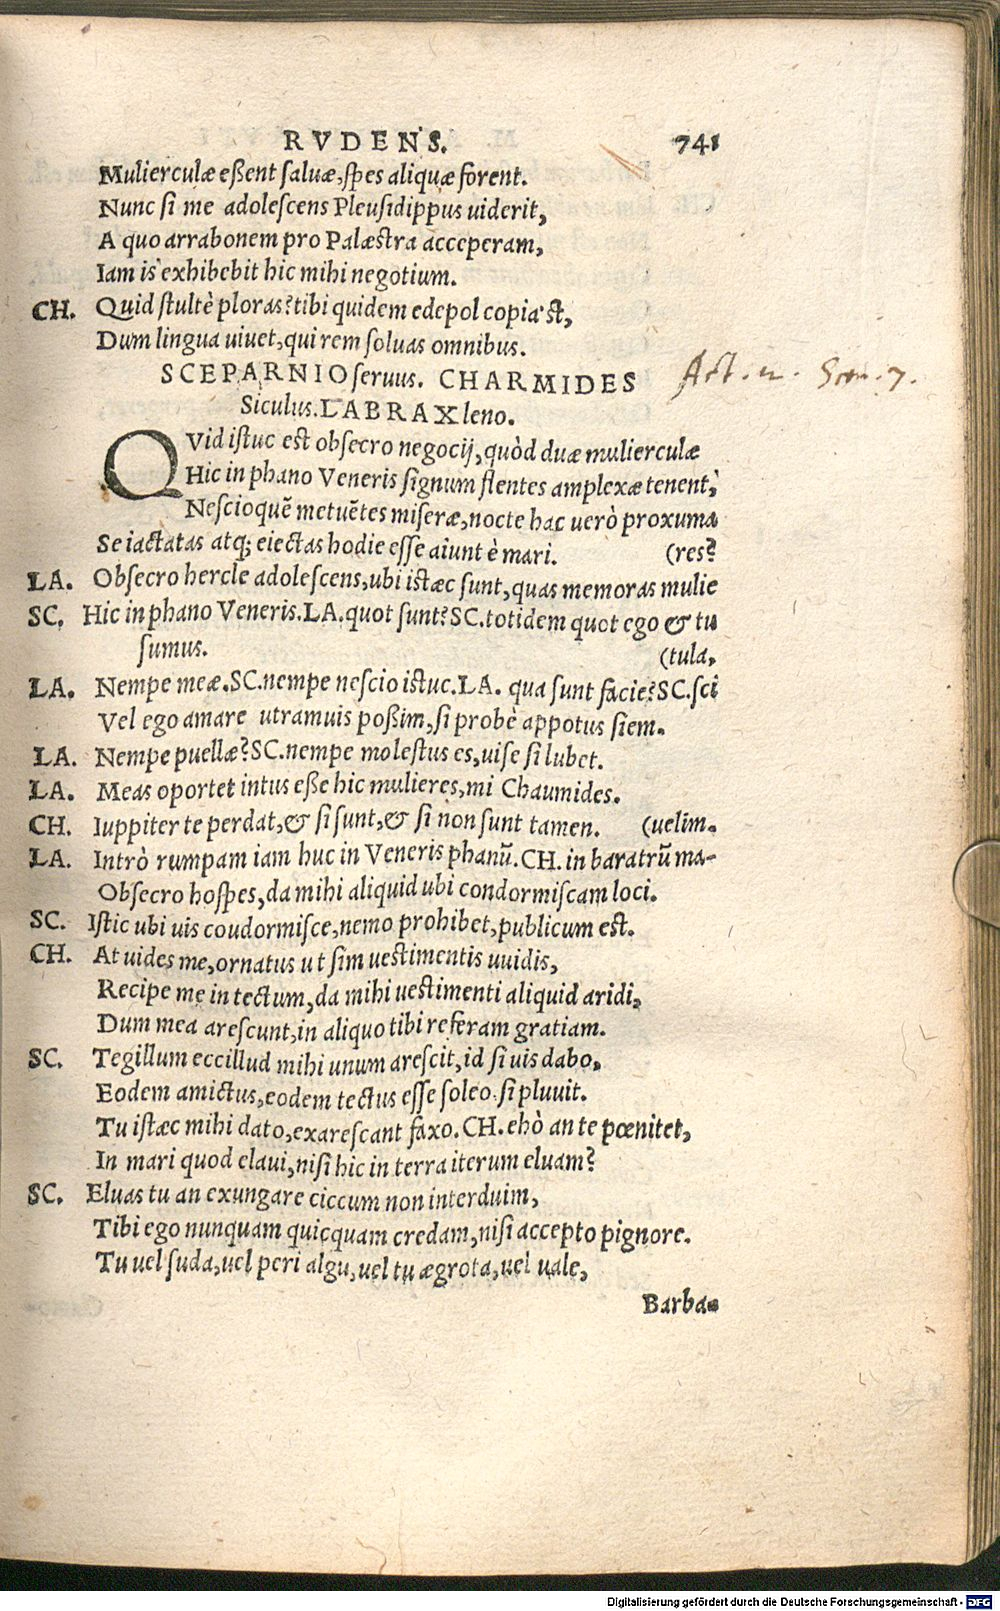 RVDENS. 741
Mulierculæ eßent saluæ, spes aliquæ forent.
Nunc si me adolescens Pleusidippus uiderit,
A quo arrabonem pro Palæstra acceperam,
Iam is exhibebit hic mihi negotium.
CH. Quid stultè ploras? tibi quidem edepol copia'st,
Dum lingua uiuet, qui rem soluas omnibus.
SCEPARNIO seruus. CHARMIDES
Siculus. LABRAX leno.
Act. 2. Scen. 7.
QVid istuc est obsecro negocij, quòd duæ mulierculæ
Hic in phano Veneris signum flentes amplexæ tenent,
Nescioquẽ metuẽtes miseræ, nocte hac uerò proxuma
Se iactatas atq; eiectas hodie esse aiunt è mari. (res?
LA. Obsecro hercle adolescens, ubi istæc sunt, quas memoras mulie
SC. Hic in phano Veneris. LA. quot sunt? SC. totidem quot ego & tu
sumus. (tula,
LA. Nempe meæ. SC. nempe nescio istuc. LA. qua sunt facie? SC. sci
Vel ego amare utramuis poßim, si probè appotus siem.
LA. Nempe puellæ? SC. nempe molestus es, uise si lubet.
LA. Meas oportet intus eße hic mulieres, mi Chaumides.
CH. Iuppiter te perdat, & si sunt, & si non sunt tamen. (uelim.
LA. Intrò rumpam iam huc in Veneris phanũ. CH. in baratrũ ma-
Obsecro hospes, da mihi aliquid ubi condormiscam loci.
SC. Istic ubi uis coudormisce, nemo prohibet, publicum est.
CH. At uides me, ornatus ut sim uestimentis uuidis,
Recipe me in tectum, da mihi uestimenti aliquid aridi,
Dum mea arescunt, in aliquo tibi referam gratiam.
SC. Tegillum eccillud mihi unum arescit, id si uis dabo,
Eodem amictus, eodem tectus esse soleo si pluuit.
Tu istæc mihi dato, exarescant faxo. CH. ehò an te pœnitet,
In mari quod elaui, nisi hic in terra iterum eluam?
SC. Eluas tu an exungare ciccum non interduim,
Tibi ego nunquam quicquam credam, nisi accepto pignore.
Tu uel suda, uel peri algu, uel tu ægrota, uel uale,
Barba-
Digitalisierung gefördert durch die Deutsche Forschungsgemeinschaft - DFG